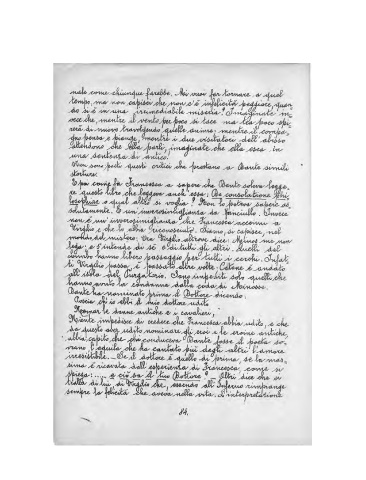 male come chiunque farebbe. Mi vuoi far tornare a quel
tempo, ma non capisci che non c'è infelicità peggiore, quan
do si è in una irrimediabile miseria. Immaginate in
vece che, mentre il vento per poco si tace ma tra poco spi
rerà di nuovo travolgendo quelle anime, mentre il compa
gno pensa e piange, mentre i due visitatori dell'abisso
attendono che ella parli, immaginate che ella esca in
una sentenza di antico.
Non son pochi questi critici che prestano a Dante simili
storture.
E poi come fa Francesca a sapere che Dante soleva legge
re questo libro che leggeva anch'essa: De consolatione Phi
losophiae o qual altro si voglia? Non lo poteva sapere as
solutamente. È un'inverosimiglianza da fanciullo. Invece
non è un'inverosimiglianza che Francesca accenni a
Virgilio e che lo abbia riconosciuto. Siamo, si capisce, nel
mondo del mistero. Ma Virgilio altrove dice: Minos me non
lega e s'intende di sé e di tutti gli altri, quelli del
Limbo hanno libero passaggio per tutti i cerchi. Infat
ti Virgilio passa, è passato altre volte. Catone è andato
all'isola del Purgatorio. Sono impediti solo quelli che
hanno avuto la condanna dalla coda di Minosse.
Dante ha nominato prima il Dottore dicendo:
Poscia ch'io ebbi il mio dottore udito
Nomar le donne antiche e i cavalieri,
Niente impedisce di credere che Francesca abbia udito, e che
da questo aver udito nominare gli eroi e le eroine antiche
abbia capito che che conduceva Dante fosse il poeta so-
vrano l'aquila che ha cantato più degli altri l'amore
irresistibile. Se il dottore è quello di prima, se la mas
sima è ricavata dall'esperienza di Francesca, come si
spiega: .... e ciò sa il tuo dottore? Altri dice che si
tratta di lui di Virgilio che, essendo all'Inferno rimpiange
sempre la felicità che aveva nella vita. È interpretazione
84.